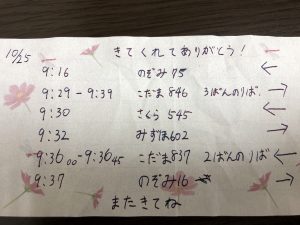 10/25 きてくれてありがとう!
9:16 のぞみ75 ←
9:29-9:39 こだま846 3ばんのりば →
9:30 さくら545 ←
9:32 みずほ602 →
9:36 00-9:36 45 こだま837 2ばんのりば ←
9:37 のぞみ16 →
またきてね